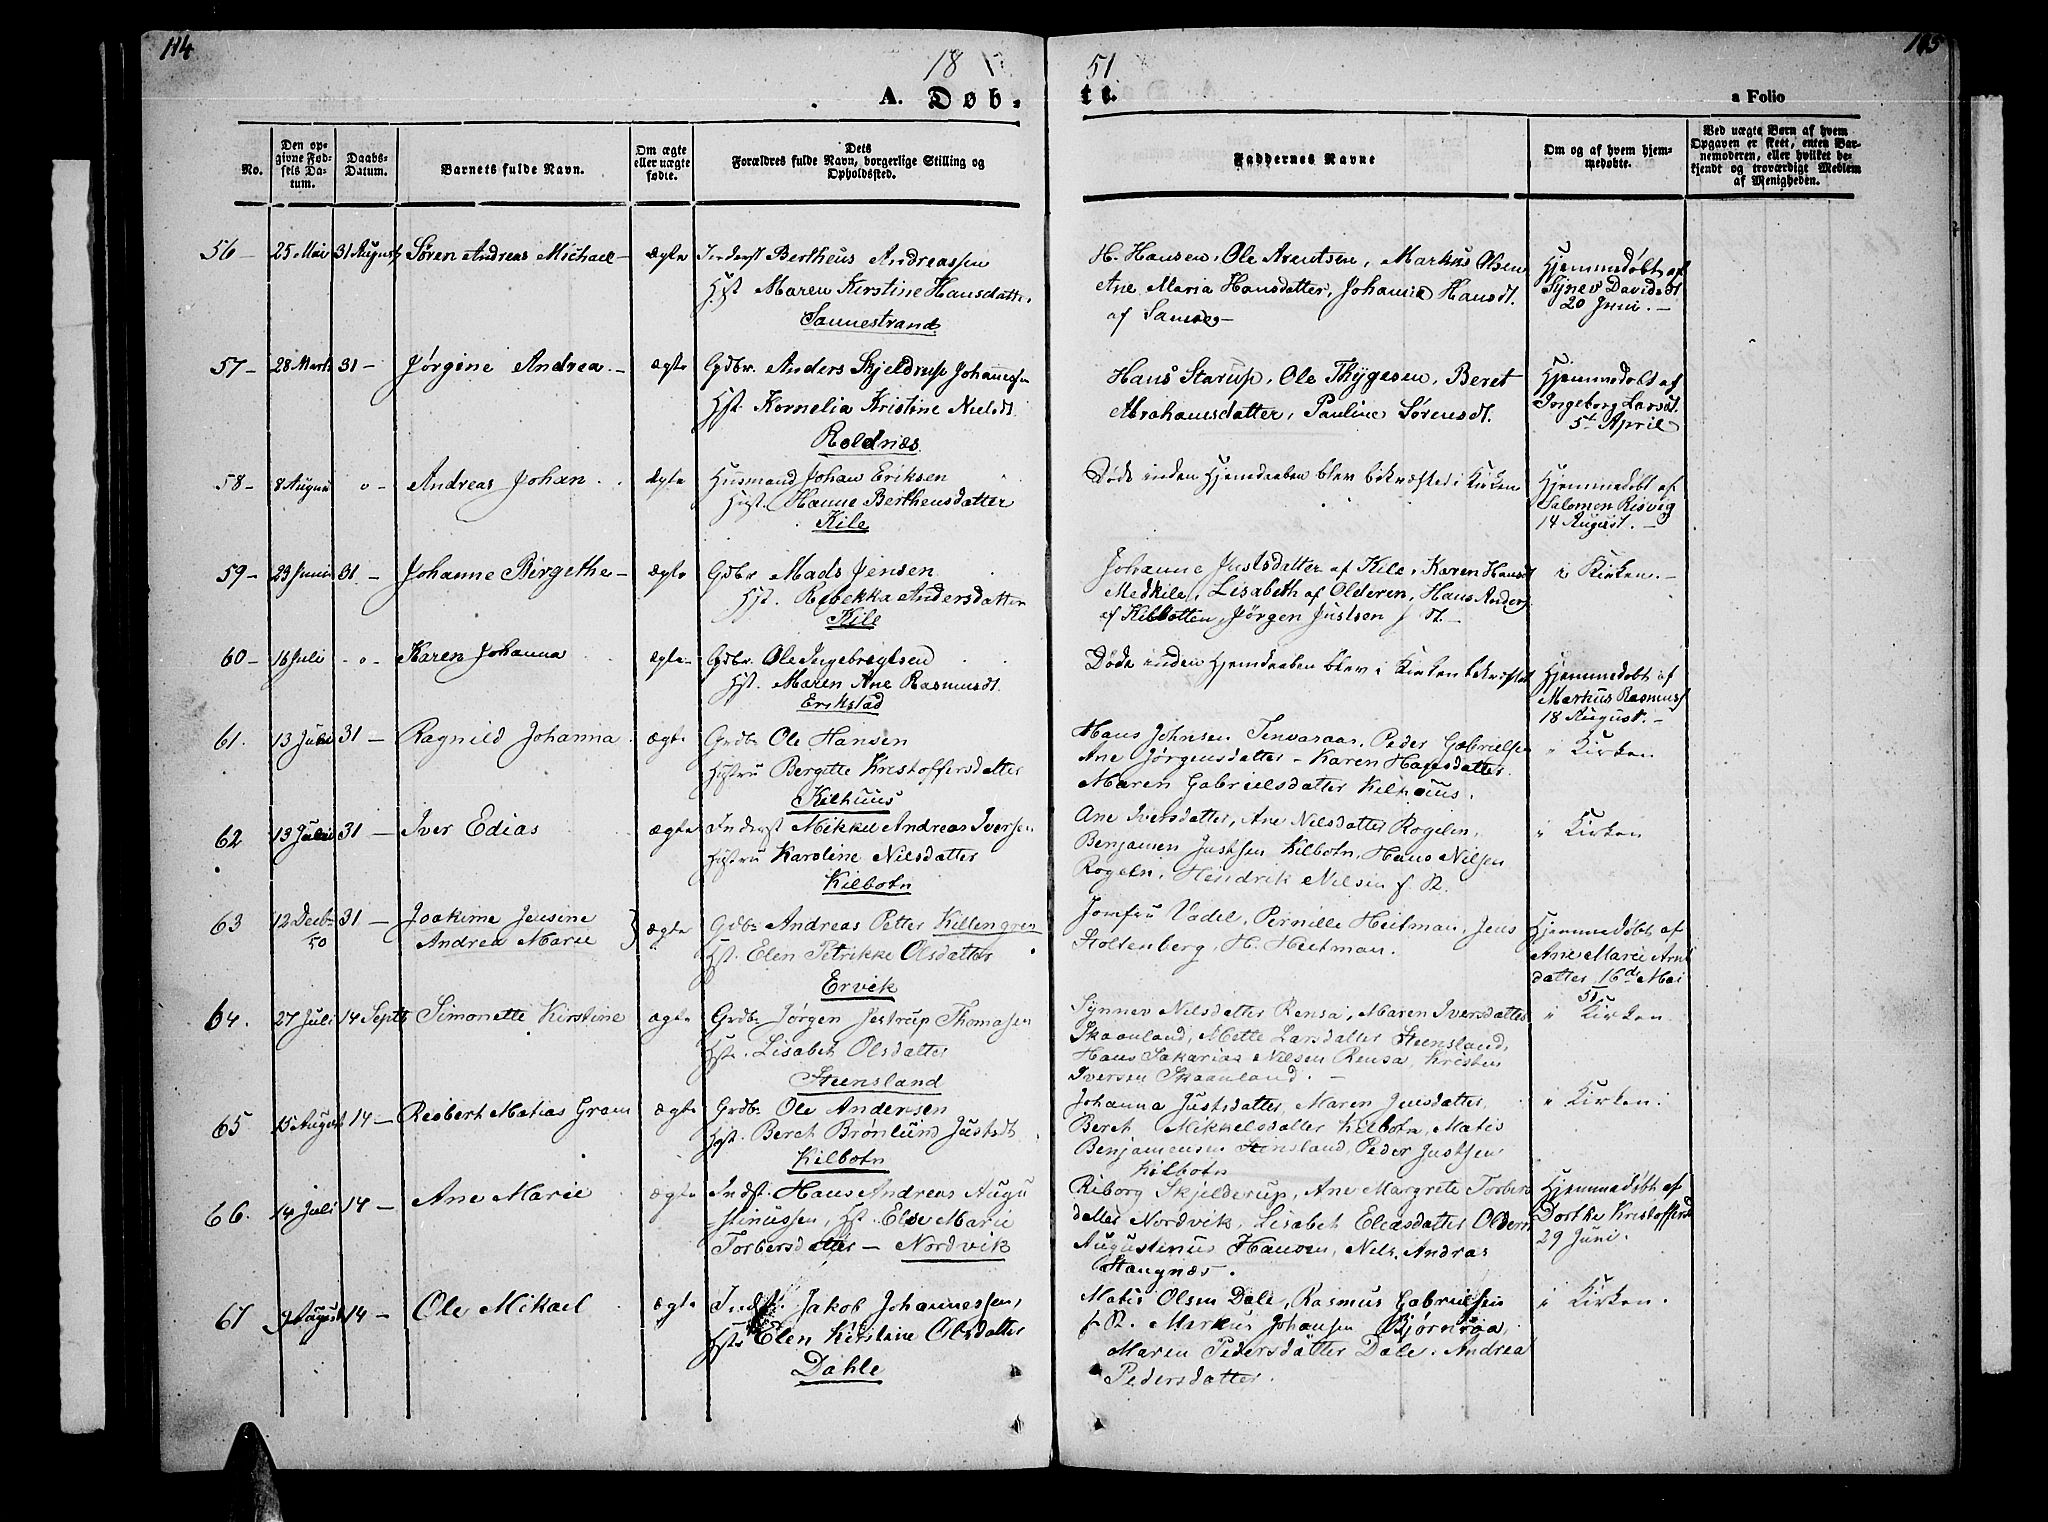 114
18
51
115
A. Døb-
te.
a Folio
No.
Den op-
givne Fød-
sels Da-
tum.
Daabs-
Datum.
Barnets fulde Navn.
Om ægte
eller uægte
fødte.
Dets
Forældres fulde Navn, borgerlige Stilling og
Opholdssted.
Faddernes Navne
Om og af hvem hjem-
medøbte.
Ved uægte Børn af hvem
Opgaven er skeet, enten Bar-
nemoderen, eller hvilket be-
kjendt og troværdigt Medlem
af Menigheden.
56 - 25 Mai 31 August Søren Andreas Michael - ægte Inderst Bertheus Andreassen
Hst Maren Kirstine Hansdatter.
Sannestrand
H. Hansen, Ole Arentsen, Markus Olsen
Ane Maria Hansdatter, Johanna Hansdt.
af
Hjemmedøbt af
Synev Davidsdt
20 Juni. -
57 - 28 Marts 31 - Jørgine Andrea - ægte Gdbr. Anders Skjeldrup Johannesen
Hst. Kornelia Kristine Nielsdt.
Roldnæs.
Hans Starup, Ole Thygesen, Beret
Abrahamsdatter, Pauline Sørensdt.
Hjemmedøbt af
Ingeborg Larsdt.
5te April
58 - 8 August " - Andreas Johan ægte Husmand Johan Eriksen
Hust. Hanne Bertheusdatter
Kile
Døde inden Hjemdaaben blev bekræftet i Kirken
Hjemmedøbt af
Salomon Risvig
14 August. -
59 - 23 Juni 31 - Johanne Birgethe - ægte Gdbr Mads Jensen
Hst. Rebekka Andersdatter
Kile
Johanne Justsdatter af Kile, Karen Hansdt
Medkile, Lisabeth af Olderen, Hans Anders
af Kilbotten, Jørgen Justsen
i Kirken. -
60 - 16 Juli - " - Karen Johanna ægte - Gdbr. Ole Ingebregtsen
Hst. Maren Ane Rasmusdt.
Erikstad
Døde inden Hjemdaaben blev i Kirken bekræftet
Hjemmedøbt af
Markus Rasmuss
18 August. -
61. 13 Juli 31 - Ragnild Johanna ægte Grdbr Ole Hansen
Hustru Bergitte Kristoffersdatter
Kilhuus
Hans Johnsen Tenvaraas, Peder Gabrielsen
Ane Jørgensdatter - Karen Hansdatter
Maren Gabrielsdatter Kilhuus.
i Kirken
62 13 Juli 31 - Iver Edias ægte Inderst Mikkel Andreas Iversen
Hustru Karoline Nilsdatter
Kilbotn
Ane Iversdatter, Ane Nilsdatter Rogeln,
Benjamen Justsen Kilbotn, Hans Nilsen
Rogeln, Hendrik Nilsen f. R.
i Kirken
63 12 Decbr 50 31 - Joakime Jensine
Andrea Marie
ægte Gdbr Andreas Petter Killengren
Hst. Elen Petrikke Olsdatter
Ervik
Jomfru Vadel, Pernille Heitman, Jens
Holtenberg, H. Heitman.
Hjemmedøbt af
Ane Marie Arnt
datter 16d Mai
51
64. 27 Juli 14 Septb Simonette Kirstine ægte Grdbr Jørgen Jestrup Thomasen
Hst. Lisabet Olsdatter
Steensland
Synnev Nilsdatter Rensa, Maren Iversdatter
Skaanland, Mette Larsdatter Steensland,
Hans Sakarias Nilsen Rensa, Kristen
Iversen Skaanland. -
i Kirken
65 15 August 14 - Reibert Matias Gram ægte Grdbr Ole Andersen
Hst. Beret Brønlund Justsdt
Kilbotn
Johanna Justsdatter, Maren Jensdatter,
Beret Mikkelsdatter Kilbotn, Matis
Benjamensen Steinsland, Peder Justsen
Kilbotn
i Kirken.
66. 14 Juli 14 - Ane Marie ægte Indst. Hans Andreas Augu
stinussen, Hst. Else Marie
Torbersdatter - Nordvik
Riborg Skjelderup, Ane Margrete Torbers
datter Nordvik, Lisabet Eliasdatter Oldern
Augustinus Hansen, Nels Andras
Stangnæs.
Hjemmedøbt af
Dorthe Kristoffersd
29 Juni.
67 9 August 14 - Ole Mikael ægte Indst. Jakob Johannessen,
Hst. Elen Kirstine Olsdatter
Dahle
Matis Olsen Dale, Rasmus Gabrielsen
f R. Markus Johansen Bjørnraa,
Maren Pedersdatter Dale, Andrea
Pedersdatter.
i Kirken.